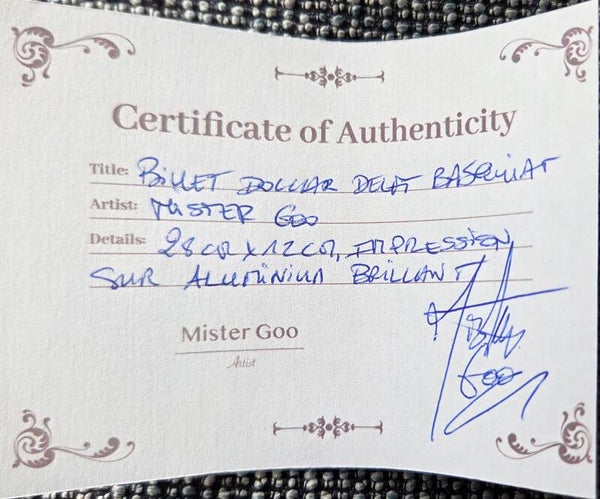 Certificate of Authenticity
Title: BILLET DOLLAR DELFT BASQUIAT
Artist: MISTER GOO
Details: 28 cm x 12 cm, IMPRESSION
SUR ALUMINIUM BRILLANT
Mister Goo
Artist
Mister
Goo